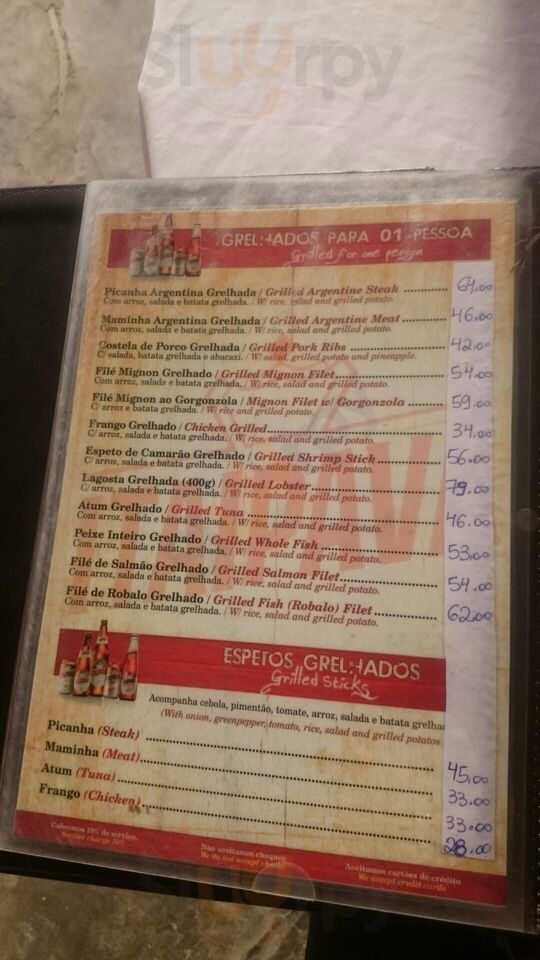 Sluurpy
GRELHADOS PARA 01 PESSOA
Grilled for one person
Picanha Argentina Grelhada / Grilled Argentine Steak 64.00
Com arroz, salada e batata grelhada. / W/ rice, salad and grilled potato.
Maminha Argentina Grelhada / Grilled Argentine Meat 46.00
Com arroz, salada e batata grelhada. / W/ rice, salad and grilled potato.
Costela de Porco Grelhada / Grilled Pork Ribs 42.00
C/ salada, batata grelhada e abacaxi. / W/ salad, grilled potato and pineapple.
Filé Mignon Grelhado / Grilled Mignon Filet 54.00
Com arroz, salada e batata grelhada. / W/ rice, salad and grilled potato.
Filé Mignon ao Gorgonzola / Mignon Filet w/ Gorgonzola 59.00
C/ arroz e batata grelhada. / W/ rice and grilled potato.
Frango Grelhado / Chicken Grilled 34.00
C/ arroz, salada e batata grelhada. / W/ rice, salad and grilled potato.
Espeto de Camarão Grelhado / Grilled Shrimp Stick 56.00
C/ arroz, salada e batata grelhada. / W/ rice, salad and grilled potato.
Lagosta Grelhada (400g) / Grilled Lobster 79.00
C/ arroz, salada e batata grelhada. / W/ rice, salad and grilled potato.
Atum Grelhado / Grilled Tuna 46.00
Com arroz, salada e batata grelhada. / W/ rice, salad and grilled potato.
Peixe Inteiro Grelhado / Grilled Whole Fish 53.00
Com arroz, salada e batata grelhada. / W/ rice, salad and grilled potato.
Filé de Salmão Grelhado / Grilled Salmon Filet 54.00
Com arroz, salada e batata grelhada. / W/ rice, salad and grilled potato.
Filé de Robalo Grelhado / Grilled Fish (Robalo) Filet 62.00
Com arroz, salada e batata grelhada. / W/ rice, salad and grilled potato.
ESPETOS GRELHADOS
Grilled Sticks
Acompanha cebola, pimentão, tomate, arroz, salada e batata grelhad
(With onion, greenpepper, tomato, rice, salad and grilled potatos
Picanha (Steak) 45.00
Maminha (Meat) 33.00
Atum (Tuna) 33.00
Frango (Chicken) 28.00
Cobramos 10% de serviço.
Service charge 10%
Não aceitamos cheques
We do not accept checks
Aceitamos cartões de crédito
We accept credit cards